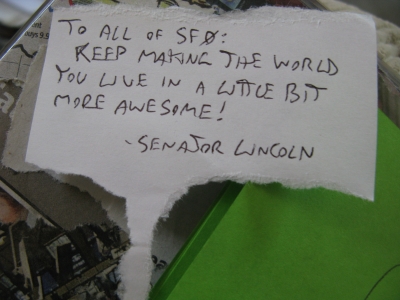 TO ALL OF SFØ:
KEEP MAKING THE WORLD
YOU LIVE IN A LITTLE BIT
MORE AWESOME!
- SENATOR LINCOLN